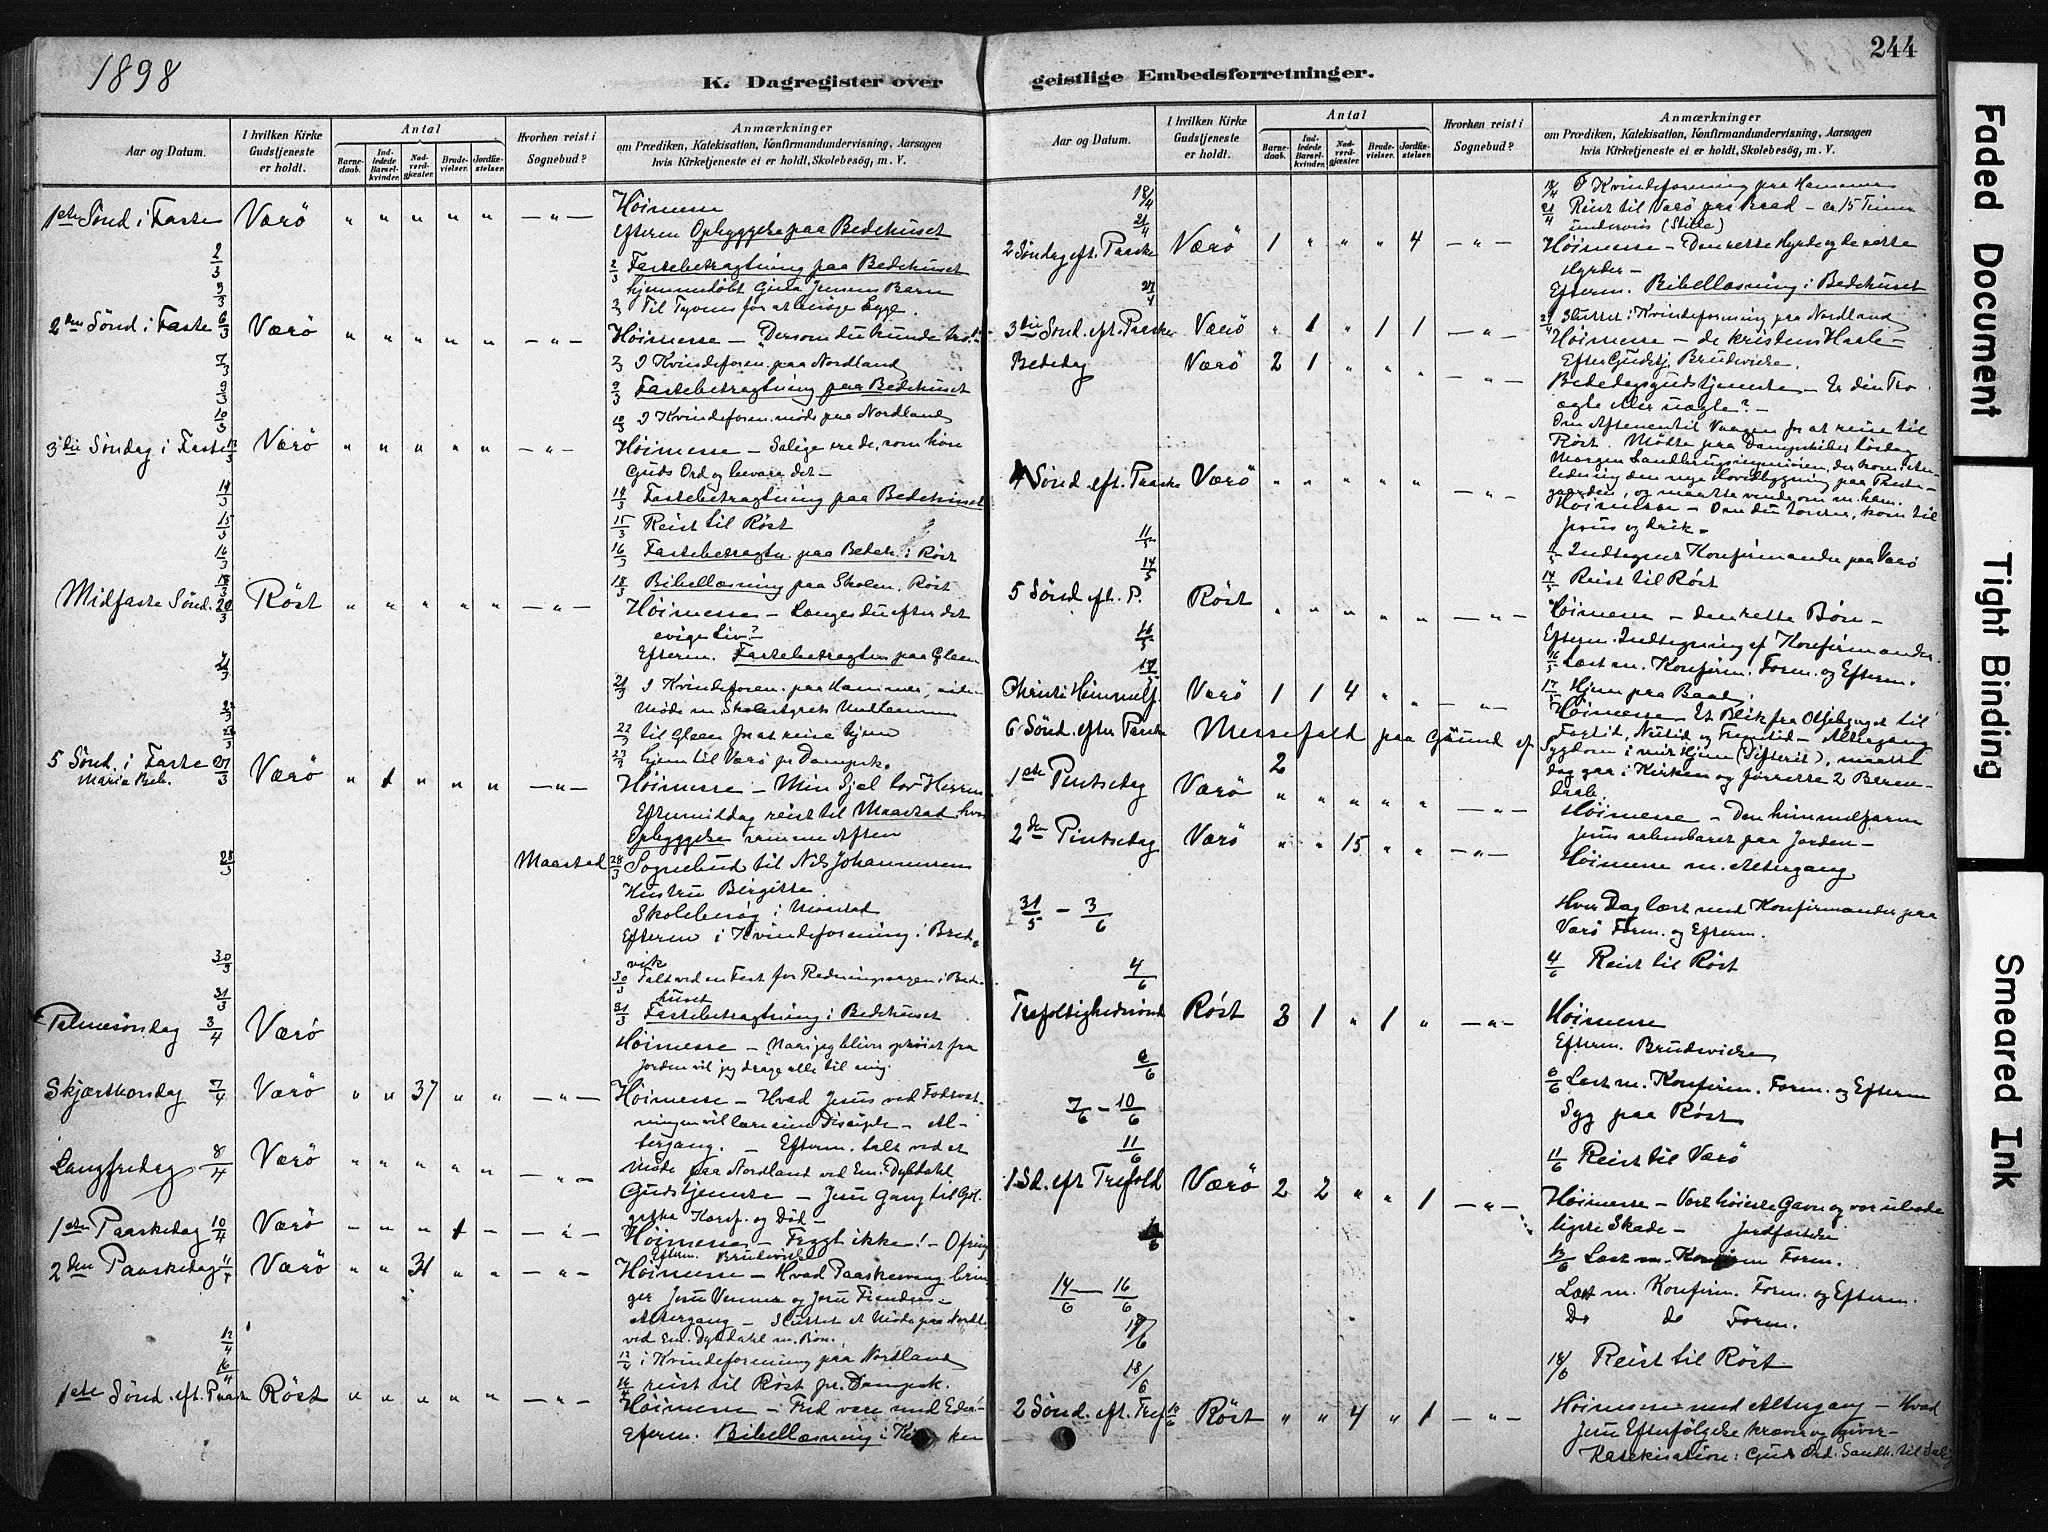 1898
K. Dagregister over geistlige Embedsforretninger.
244
Aar og Datum.
I hvilken Kirke Gudstjeneste er holdt.
Antal
Barnedaab.
Indledede Barselkvinder.
Nadverdgjæster.
Brudevielser.
Jordfæstelser.
Hvorhen reist i Sognebud?
Anmærkninger
om Prædiken, Katekisation, Konfirmandundervisning, Aarsagen
hvis Kirketjeneste ei er holdt, Skolebesög, m. V.
1ste Sønd i Faste Værö " " " " " — " — Höimesse
Efterm Opbyggelse paa Bedehuset
2/3 2/3 Fastebetragtning paa Bedehuset
hjemmedöbt Gina Jensens Barn
3/3 3/3 Til Tyvnes for at besöge Syge.
2den Sønd i Faste 6/3 Værö " " " " " — " — Höimesse — Dersom du kunde tro!
7/3 7/3 I Kvindeforen. paa Nordland
9/3 9/3 Fastebetragtning paa Bedehuset
10/3 10/3 I Kvindeforen. möde paa Nordland
3die Søndag i Faste 13/3 Værö " " " " " — " — Höimesse — Salige ere de, som höre
Guds Ord og bevare det —
14/3 14/3 Fastebetragtning paa Bedehuset
15/3 15/3 Reist til Röst
16/3 16/3 Fastebetragtn. paa Bedeh. i Röst
18/3 18/3 Bibellæsning paa Skolen, Röst
Midfaste Sønd. 20/3 Röst " " " " " — " — Höimesse — Længes du efter det
evige Liv?
Efterm. Fastebetragtn paa Gleen
21/3 21/3 I Kvindeforen. paa Hammer, siden
Möde m. Skolestyrets
22/3 22/3 til Gleen for at reise hjem
23/3 23/3 hjem til Værö pr. Dampsk.
5 Sønd. i Faste 27/3 Værö " 1 " " " — " — Höimesse — Min Sjel lov Herren
Maria Beb.
Eftermiddag reist til Maastad, hvor
Opbyggelse samme Aften
28/3 Maastad 28/3 Sognebud til Nils Johannessens
Hustru Birgitte.
Skolebesög i Maastad
Efterm i Kvindeforening i Bredvik
30/3 30/3 Talt ved en Fest for Redningssagen i Bedehuset
31/3 31/3 Fastebetragtning i Bedehuset
Palmesöndag 3/4 Værö Höimesse — Naar jeg bliver ophöiet fra
Jorden vil jeg drage alle til mig.
Skjærthorsdag 7/4 Værö " " 37 " " — " — Höimesse — Hvad Jesus ved Fodvaskningen
vil lære sine Disciple — Altergang.
— Efterm. talt ved et
Möde paa Nordland ved Em. Dybdahl
Langfredag 8/4 Værö " " " " " — " — Gudstjeneste — Jesu Gang til Golgatha
Korsf. og Död —
1ste Paaskedag 10/4 Værö — " " 1 — — " — Höimesse — Frygt ikke! — Ofring
Efterm. Brudevielse
2den Paaskedag 11/4 Værö " " 31 " " — " — Höimesse — Hvad Paaskesang bringer
Jesu Venner og Jesu Fiender —
Altergang — Sluttet et Möde paa Nordl.
ved Em. Dybdahl m. Bön.
12/4 12/4 i Kvindeforening paa Nordland
16/4 16/4 reist til Röst pr. Dampsk.
1ste Sønd. eft. Paaske Röst " " " " " — " — Höimesse — Fred være med Eder!
Efterm. Bibellæsning i Kirken
Aar og Datum.
I hvilken Kirke Gudstjeneste er holdt.
Antal
Barnedaab.
Indledede Barselkvinder.
Nadverdgjæster.
Brudevielser.
Jordfæstelser.
Hvorhen reist i Sognebud?
Anmærkninger
om Prædiken, Katekisation, Konfirmandundervisning, Aarsagen
hvis Kirketjeneste ei er holdt, Skolebesög, m. V.
18/4 18/4 I Kvindeforening paa Hammer
21/4 21/4 Reist til Værö paa Baad — ca 15 Timer
underveis (Stille)
2 Söndag eft. Paaske Værö 1 " " " 4 — " — Höimesse — Den rette Hyrde og de rette
Hyrder —
Efterm. Bibellæsning i Bedehuset
27/4 Sluttet i Kvindeforening paa Nordland
3die Sønd. eft. Paaske Værö " 1 " 1 1 — " — Höimesse — de kristens Haab —
Efter Gudstj. Brudevielse.
Bededag Værö 2 1 " " " — " — Bededagsgudstjeneste — Er din Tro
ægte eller uægte? —
Om Aftenen til Vaagen for at reise til
Röst. Mötte paa Dampskibet lördag
Morgen Landbrugsingeniören, der kom i Anledning
den nye Hovedbygning paa Prestegaarden,
og maatte vende om m. ham.
4 Sønd. eft. Paaske Værö " " " " " — " — Höimesse — Om du törster, kom til
Jesus og drik —
11/5 11/5 Indtegnet Konfirmander paa Værö
14/5 14/5 Reist til Röst
5 Sønd eft. P. Röst " " " " " — " — Höimesse — den rette Bön —
Efterm. Indtegning af Konfirmander.
16/5 16/5 Læst m. Konfirm. Form. og Efterm.
17/5 17/5 Hjem paa Baad.
Christi Himmelf. Værö 1 1 4 " " — " — Höimesse — Et Blik fra Oljebjerget til
Fortid, Nutid og Fremtid — Altergang
6 Sønd. efter Paaske Messefald paa Grund af Sygdom i mit Hjem (Difterit), maatte
2 dog gaa i Kirken og forrette 2 Barnedaab.
1ste Pintsedag Værö " " " " " — " — Höimesse — Den himmelfarne
Jesus aabenbaret paa Jorden —
2den Pintsedag Værö " " 15 " " — " — Höimesse m. Altergang
31/5 — 3/6 Hver Dag læst med Konfirmander paa
Værö Form. og Efterm.
4/6 4/6 Reist til Röst
Trefoldighedssönd Röst 3 1 " 1 " — " — Höimesse
Efterm. Brudevielse
6/6 6/6 Læst m. Konfirm. Form. og Efterm
7/6 — 10/6 Syg paa Röst
11/6 11/6 Reist til Værö
1 Sd. eft Trefold Værö 2 2 " " 1 — " — Höimesse — Vort höieste Gavn og vor ubodeligste
Skade — Jordfæstelse
13/6 13/6 Læst m. Konfirm Form.
14/6 — 16/6 Læst m. Konfirm. Form. og Efterm.
17/6 Do do Form.
18/6 18/6 Reist til Röst
2 Sønd. eft. Tref 19/6 Röst " " 4 " 1 — " — Höimesse med Altergang — Hvad
Jesu Efterfölgelse kræver og giver —
Katekisation: Guds Ord. Sandh. til Salig
Faded Document
Tight Binding
Smeared Ink